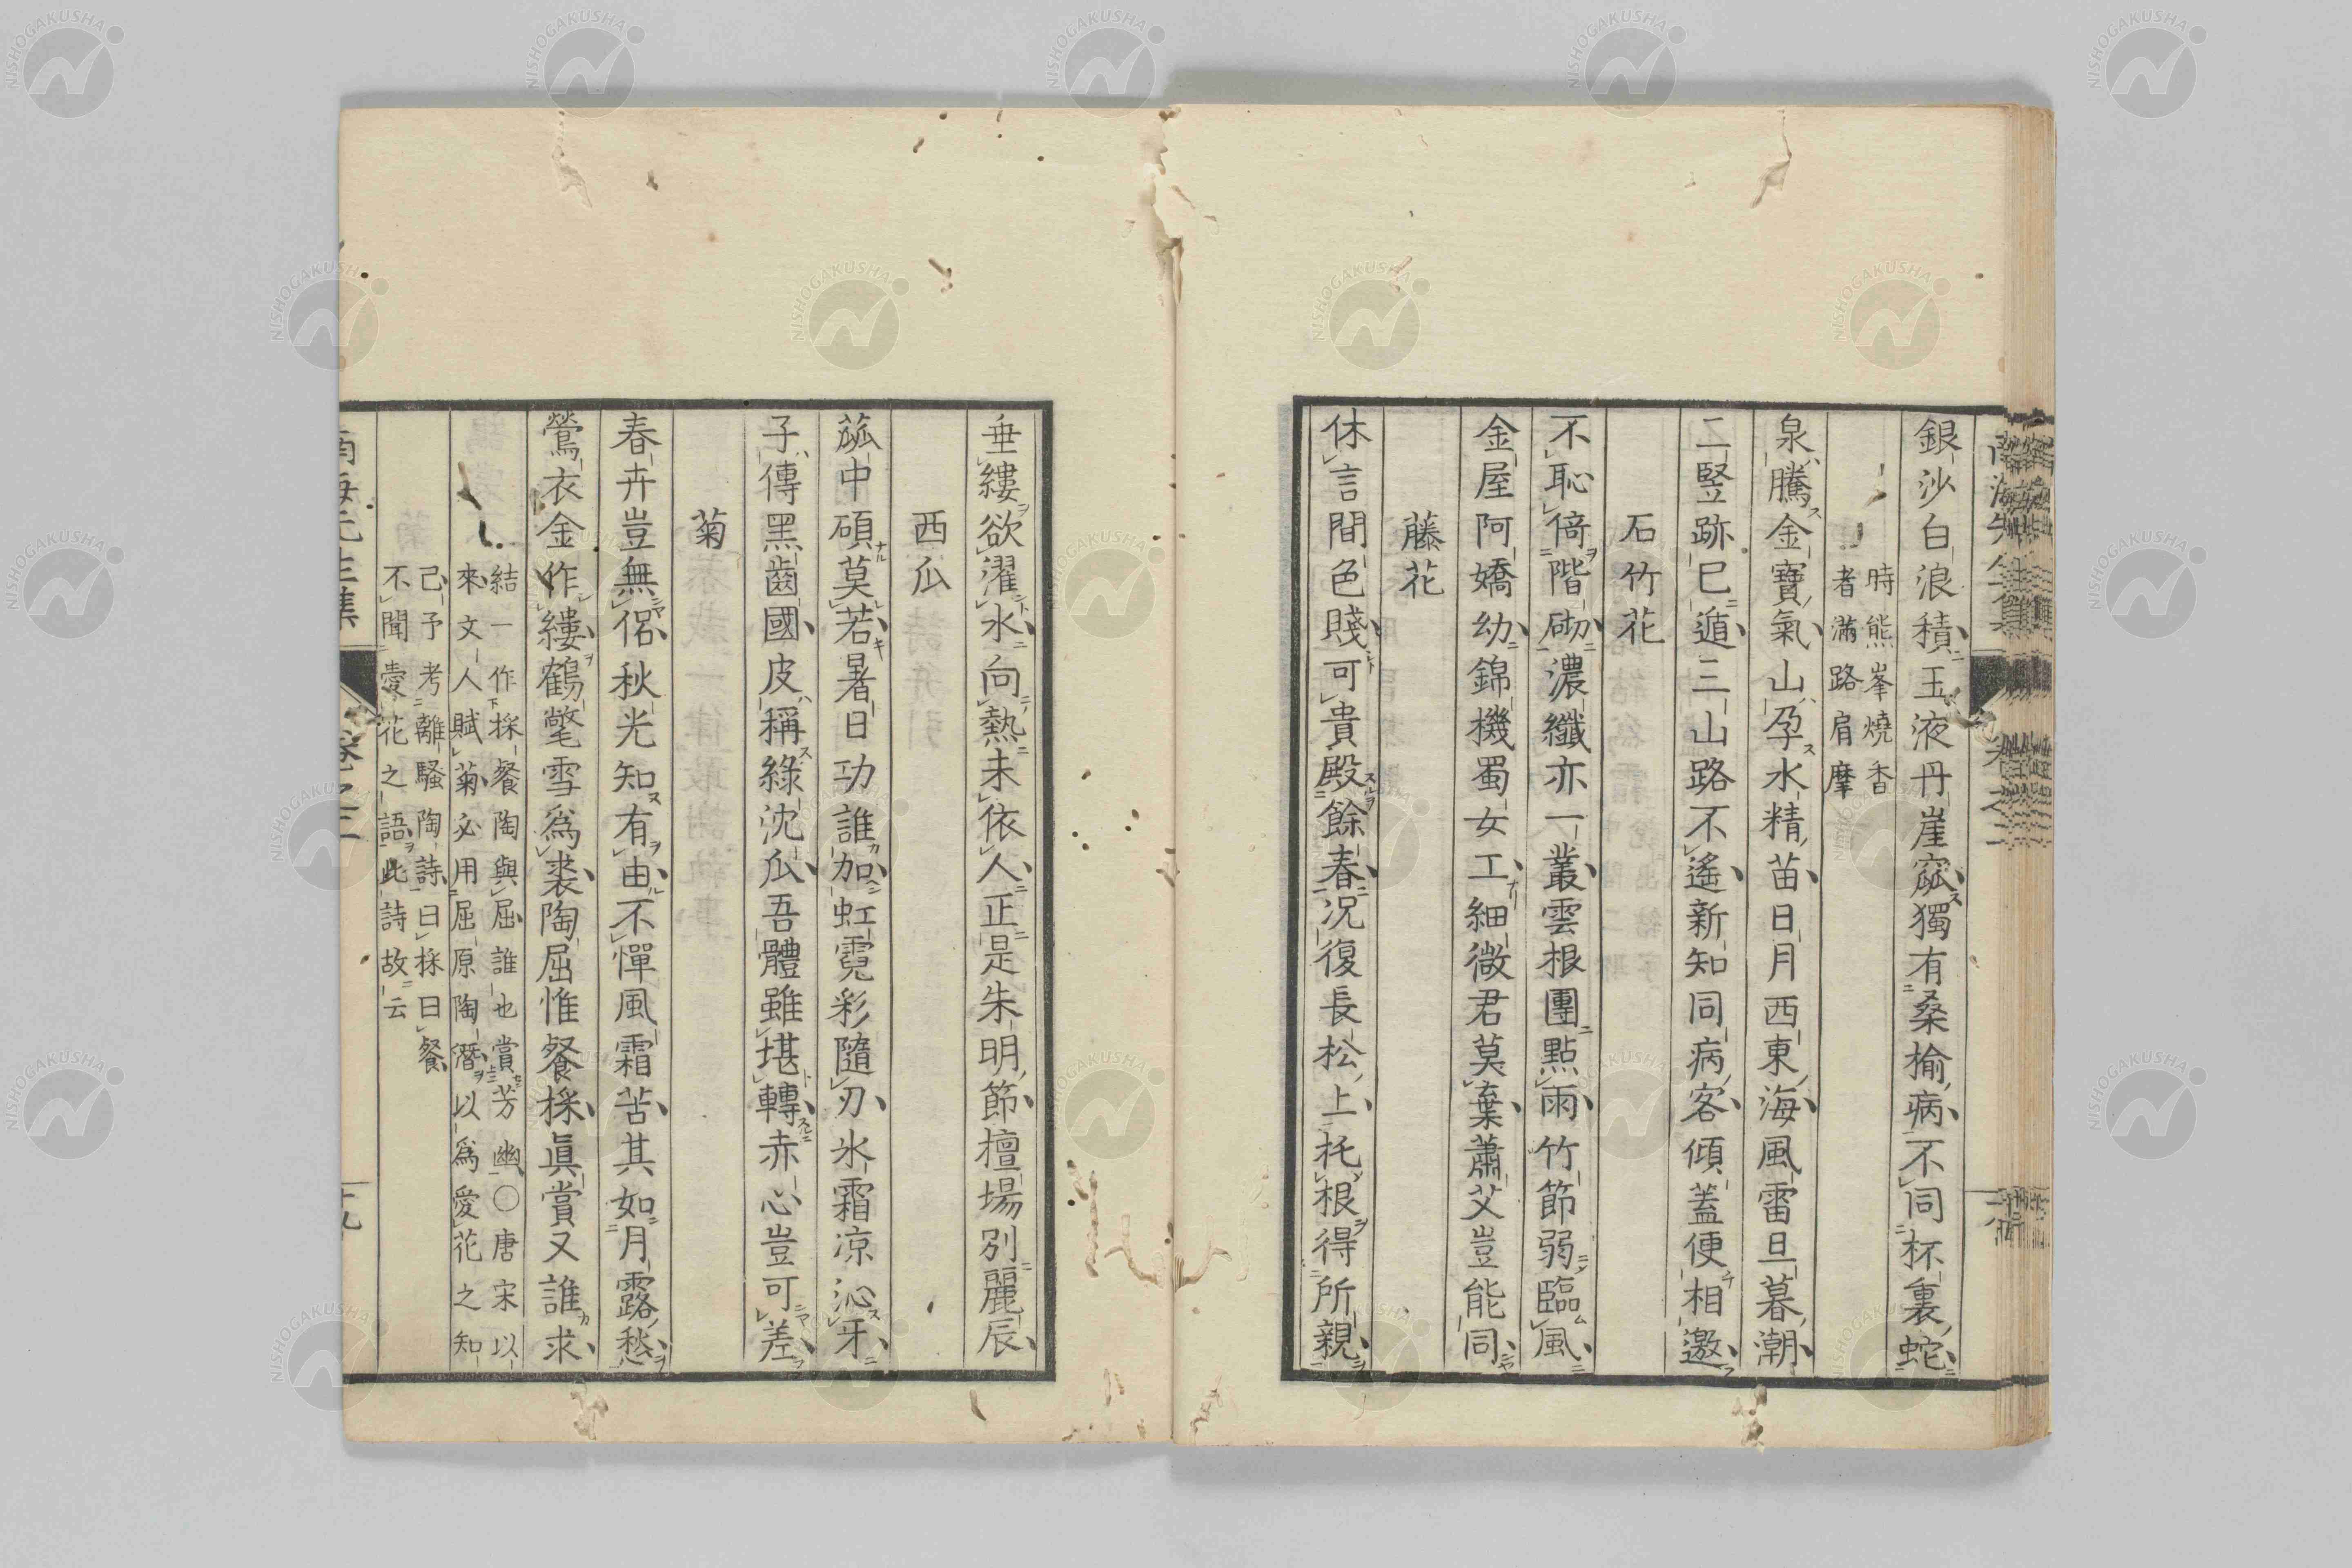 銀沙白浪積玉液丹崖窳獨有桑榆病不同杯裏蛇
時熊峯燒香
者滿路肩摩
泉騰金寶氣山孕水精苗日月西東海風雷旦暮潮
二竪跡已遁三山路不遙新知同病客傾蓋便相邀
石竹花
不恥倚階砌濃纖亦一叢雲根團點雨竹節弱臨風
金屋阿嬌幼錦機蜀女工細微君莫棄蕭艾豈能同
藤花
休言間色賤可貴殿餘春況復長松上托根得所親
垂縷欲濯水向熱未依人正是朱明節檀場別麗辰
西瓜
蓏中碩莫若暑日功誰加虹霓彩隨刃氷霜凉沁牙
子傳黑齒國皮稱綠沈瓜吾體雖堪轉赤心豈可差
菊
春卉豈無侶秋光知有由不憚風霜苦其如月露愁
鶯衣金作縷鶴氅雪爲裘陶屈惟餐採眞賞又誰求
結一作採餐陶與屈誰也賞芳幽○唐宋以
來文人賦菊必用屈原陶潛以爲愛花之知
己予考離騷陶詩曰採曰餐
不聞愛花之語此詩故云